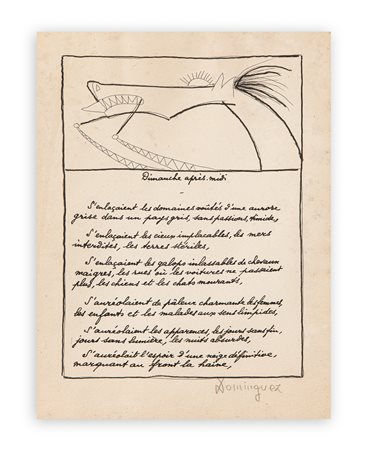 Dimanche après-midi
S'enlaçaient les domaines voûtés d'une aurore
grise dans un pays gris, sans passions, timide,
S'enlaçaient les cieux implacables, les mers
interdites, les terres stériles,
S'enlaçaient les galops inlassables de chevaux
maigres, les rues où les voitures ne passaient
plus, les chiens et les chats mourants,
S'auréolaient de pâleur charmante les femmes,
les enfants et les malades aux sens limpides,
S'auréolaient les apparences, les jours sans fin,
jours sans lumière, les nuits absurdes,
S'auréolait l'espoir d'une neige définitive,
marquant au front la haine,
Dominguez